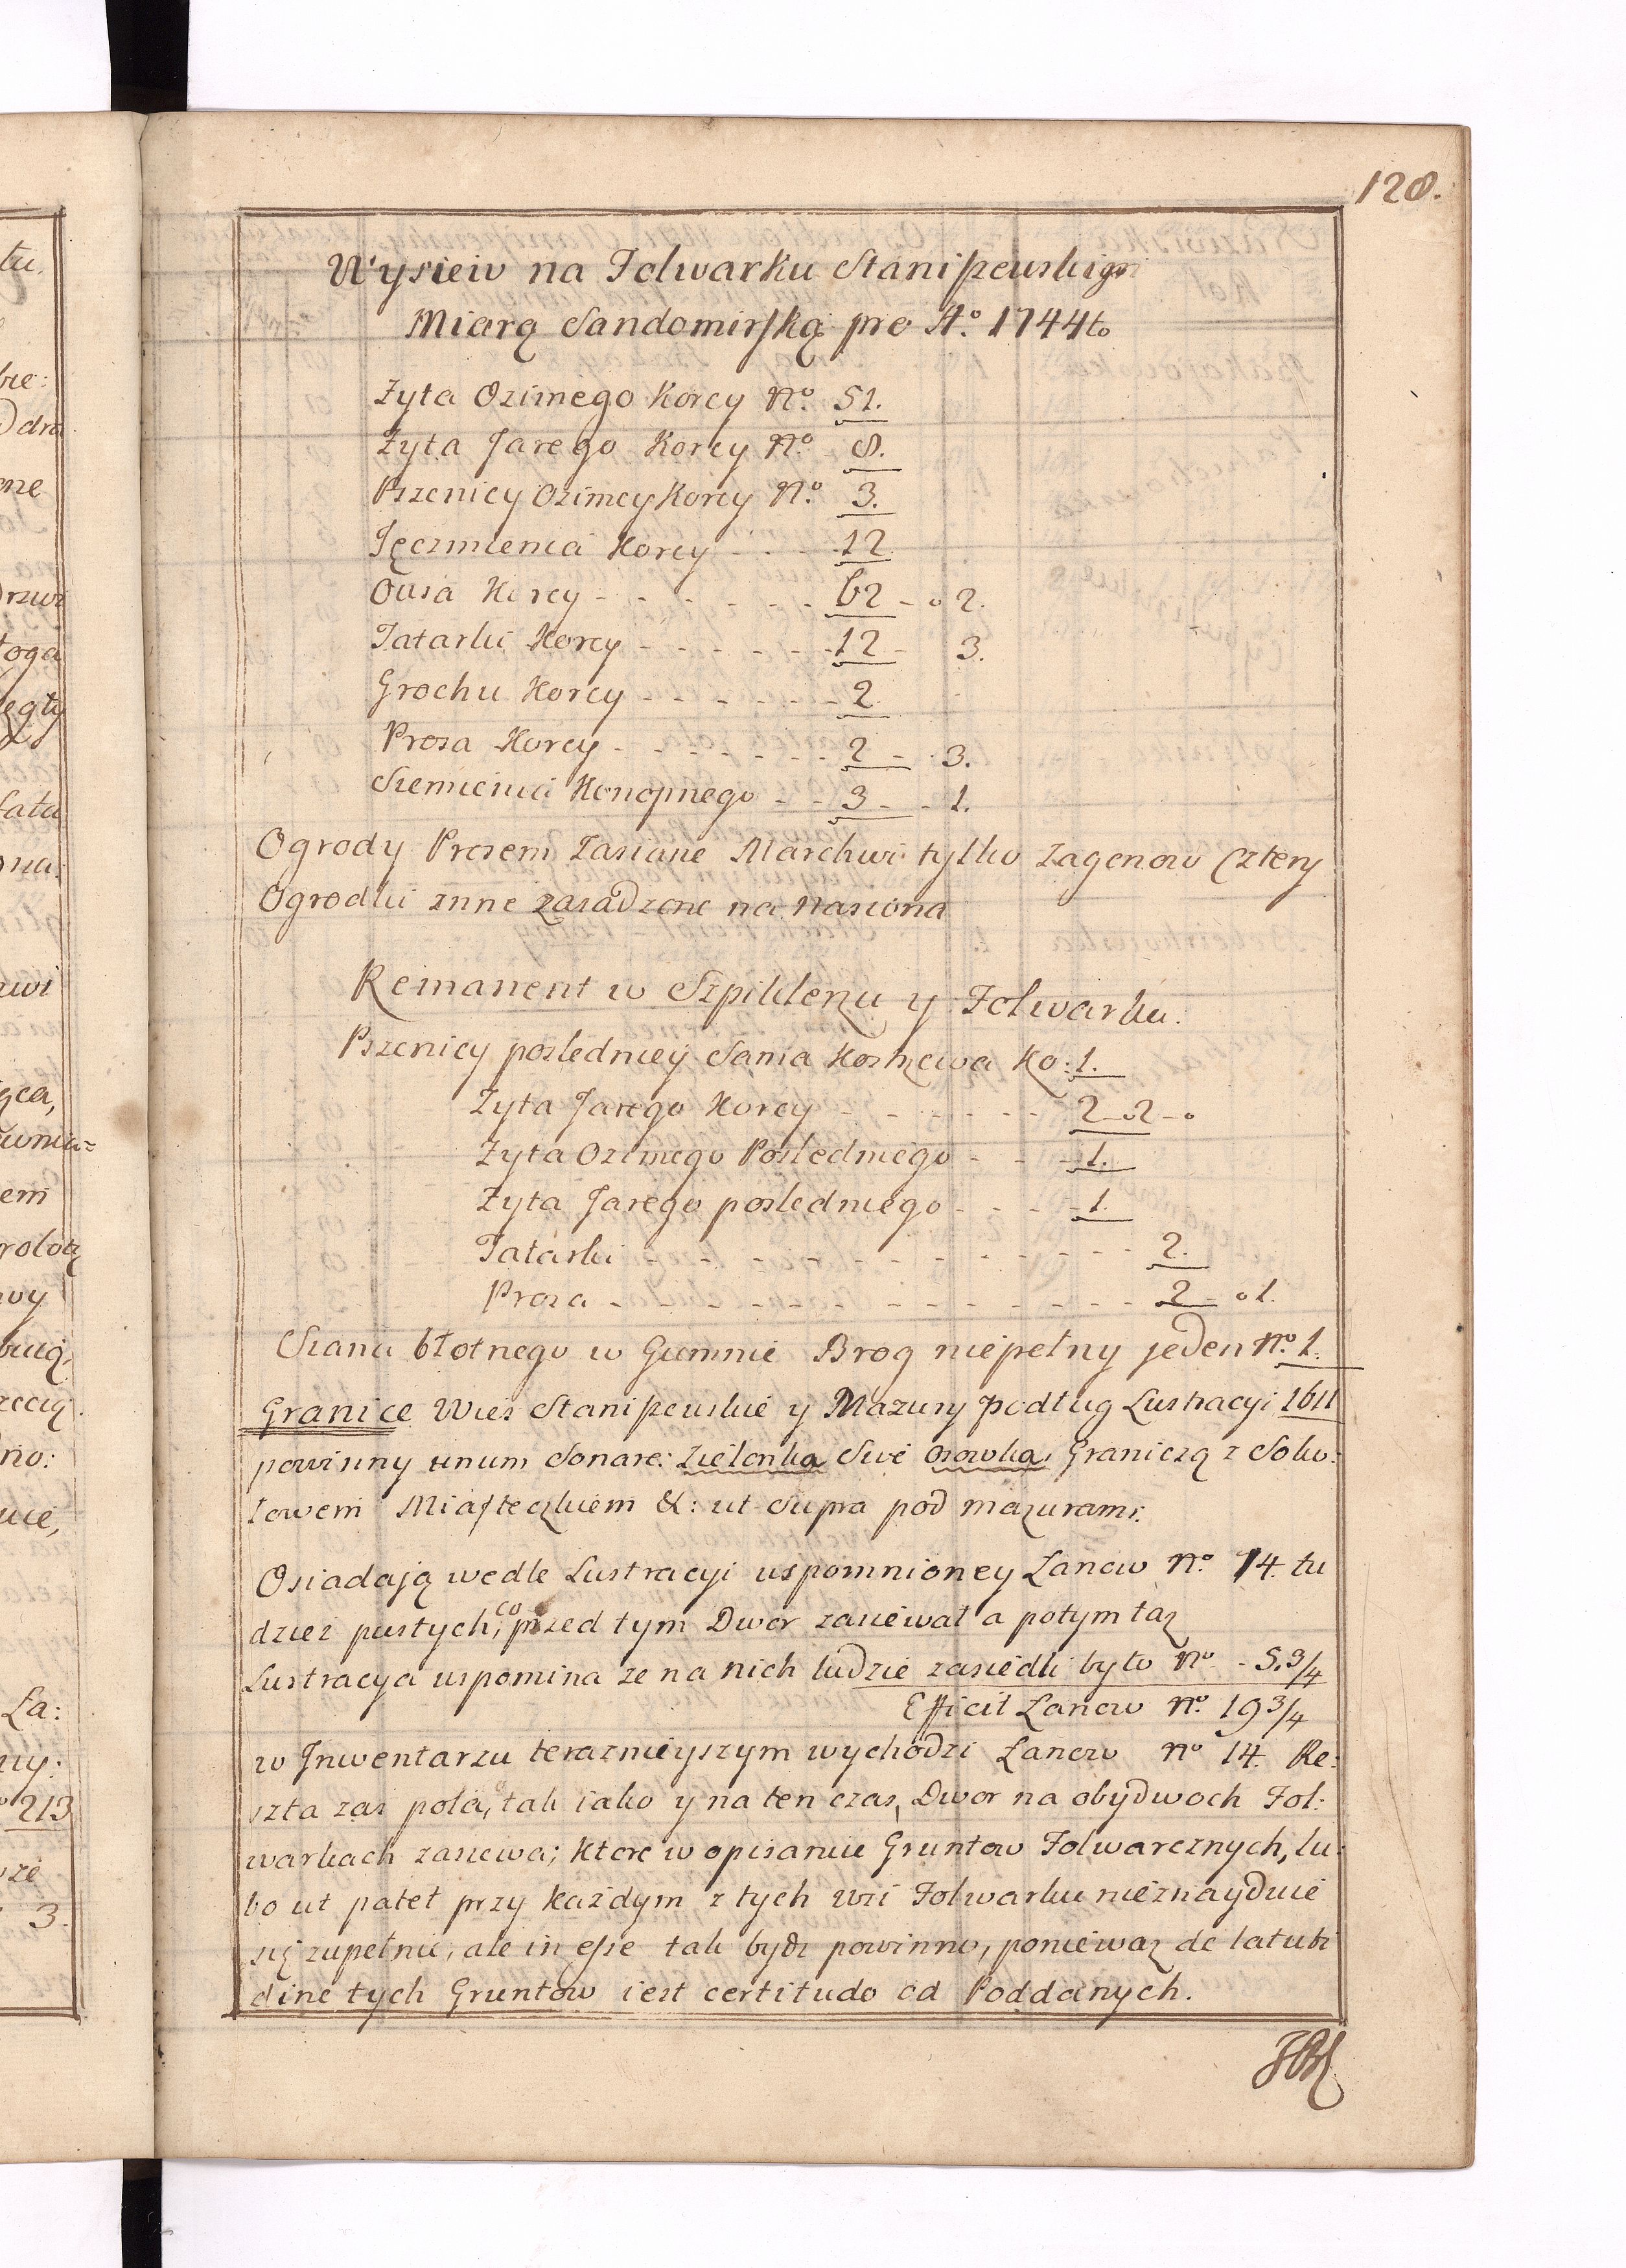 128.
Wysiew na Folwarku Stanipewskim
Miarą Sandomirską pro Ao. 1744to
Zyta Ozimego Korcy No. 51.
Zyta Jarego Korcy No. 8.
Pszenicy Ozimey Korcy No. 3.
Jęczmienia Korcy - - - 12.
Owsa Korcy - - - - - - 62 - o 2.
Tatarki Korcy - - - - - - 12 - 3.
Grochu Korcy - - - - - 2.
Prosa Korcy - - - - - - 2 - 3.
Siemienia Konopnego - - 3 - - 1.
Ogrody Prosem Zasiane Marchwi tylko zagonow Cztery
Ogrodki inne zasadzone na nasiona
Remanent w Szpiklerzu y Folwarku.
Pszenicy posledniey Sama Kostrzewa Ko: 1.
Zyta Jarego Korcy - - - - - - 2 - o2 - o
Zyta Ozimego Posledniego - - - 1.
Zyta Jarego posledniego - - - - 1.
Tatarki - - - - - - - - - - - - 2.
Prosa - - - - - - - - - - - - 2 - o 1.
Siana błotnego w Gumnie Brog niepełny jeden No. 1.
Granice Wies Stanipewskie y Mazury podług Lustracyi 1611
powinny unum Sonare: Zielonka Sive Osowka, Graniczą z Soko:
łowem Miasteczkiem &: ut Supra pod mazurami.
Osiadają wedle Lustracyi wspomnioney Łanow No. 14. tu
dziez pustych, co przed tym Dwor zasiewał a potym taz
Lustracya wspomina ze na nich ludzie zasiedli było No. - 5.3/4
Efficit Łanow No. 19 3/4
w Jnwentarzu teraznieyszym wychodzi Łanow No 14. Re:
szta zas pola, tak iako y na ten czas, Dwor na obydwoch Fol:
warkach zasiewa; Ktore w opisaniu Gruntow Folwarcznych, lu:
bo ut patet przy każdym z tych wsi Folwarku nieznayduie
się zupełnie, ale in esse tak bydz powinno, poniewaz de latitu
dine tych Gruntow iest certitudo od Poddanych.